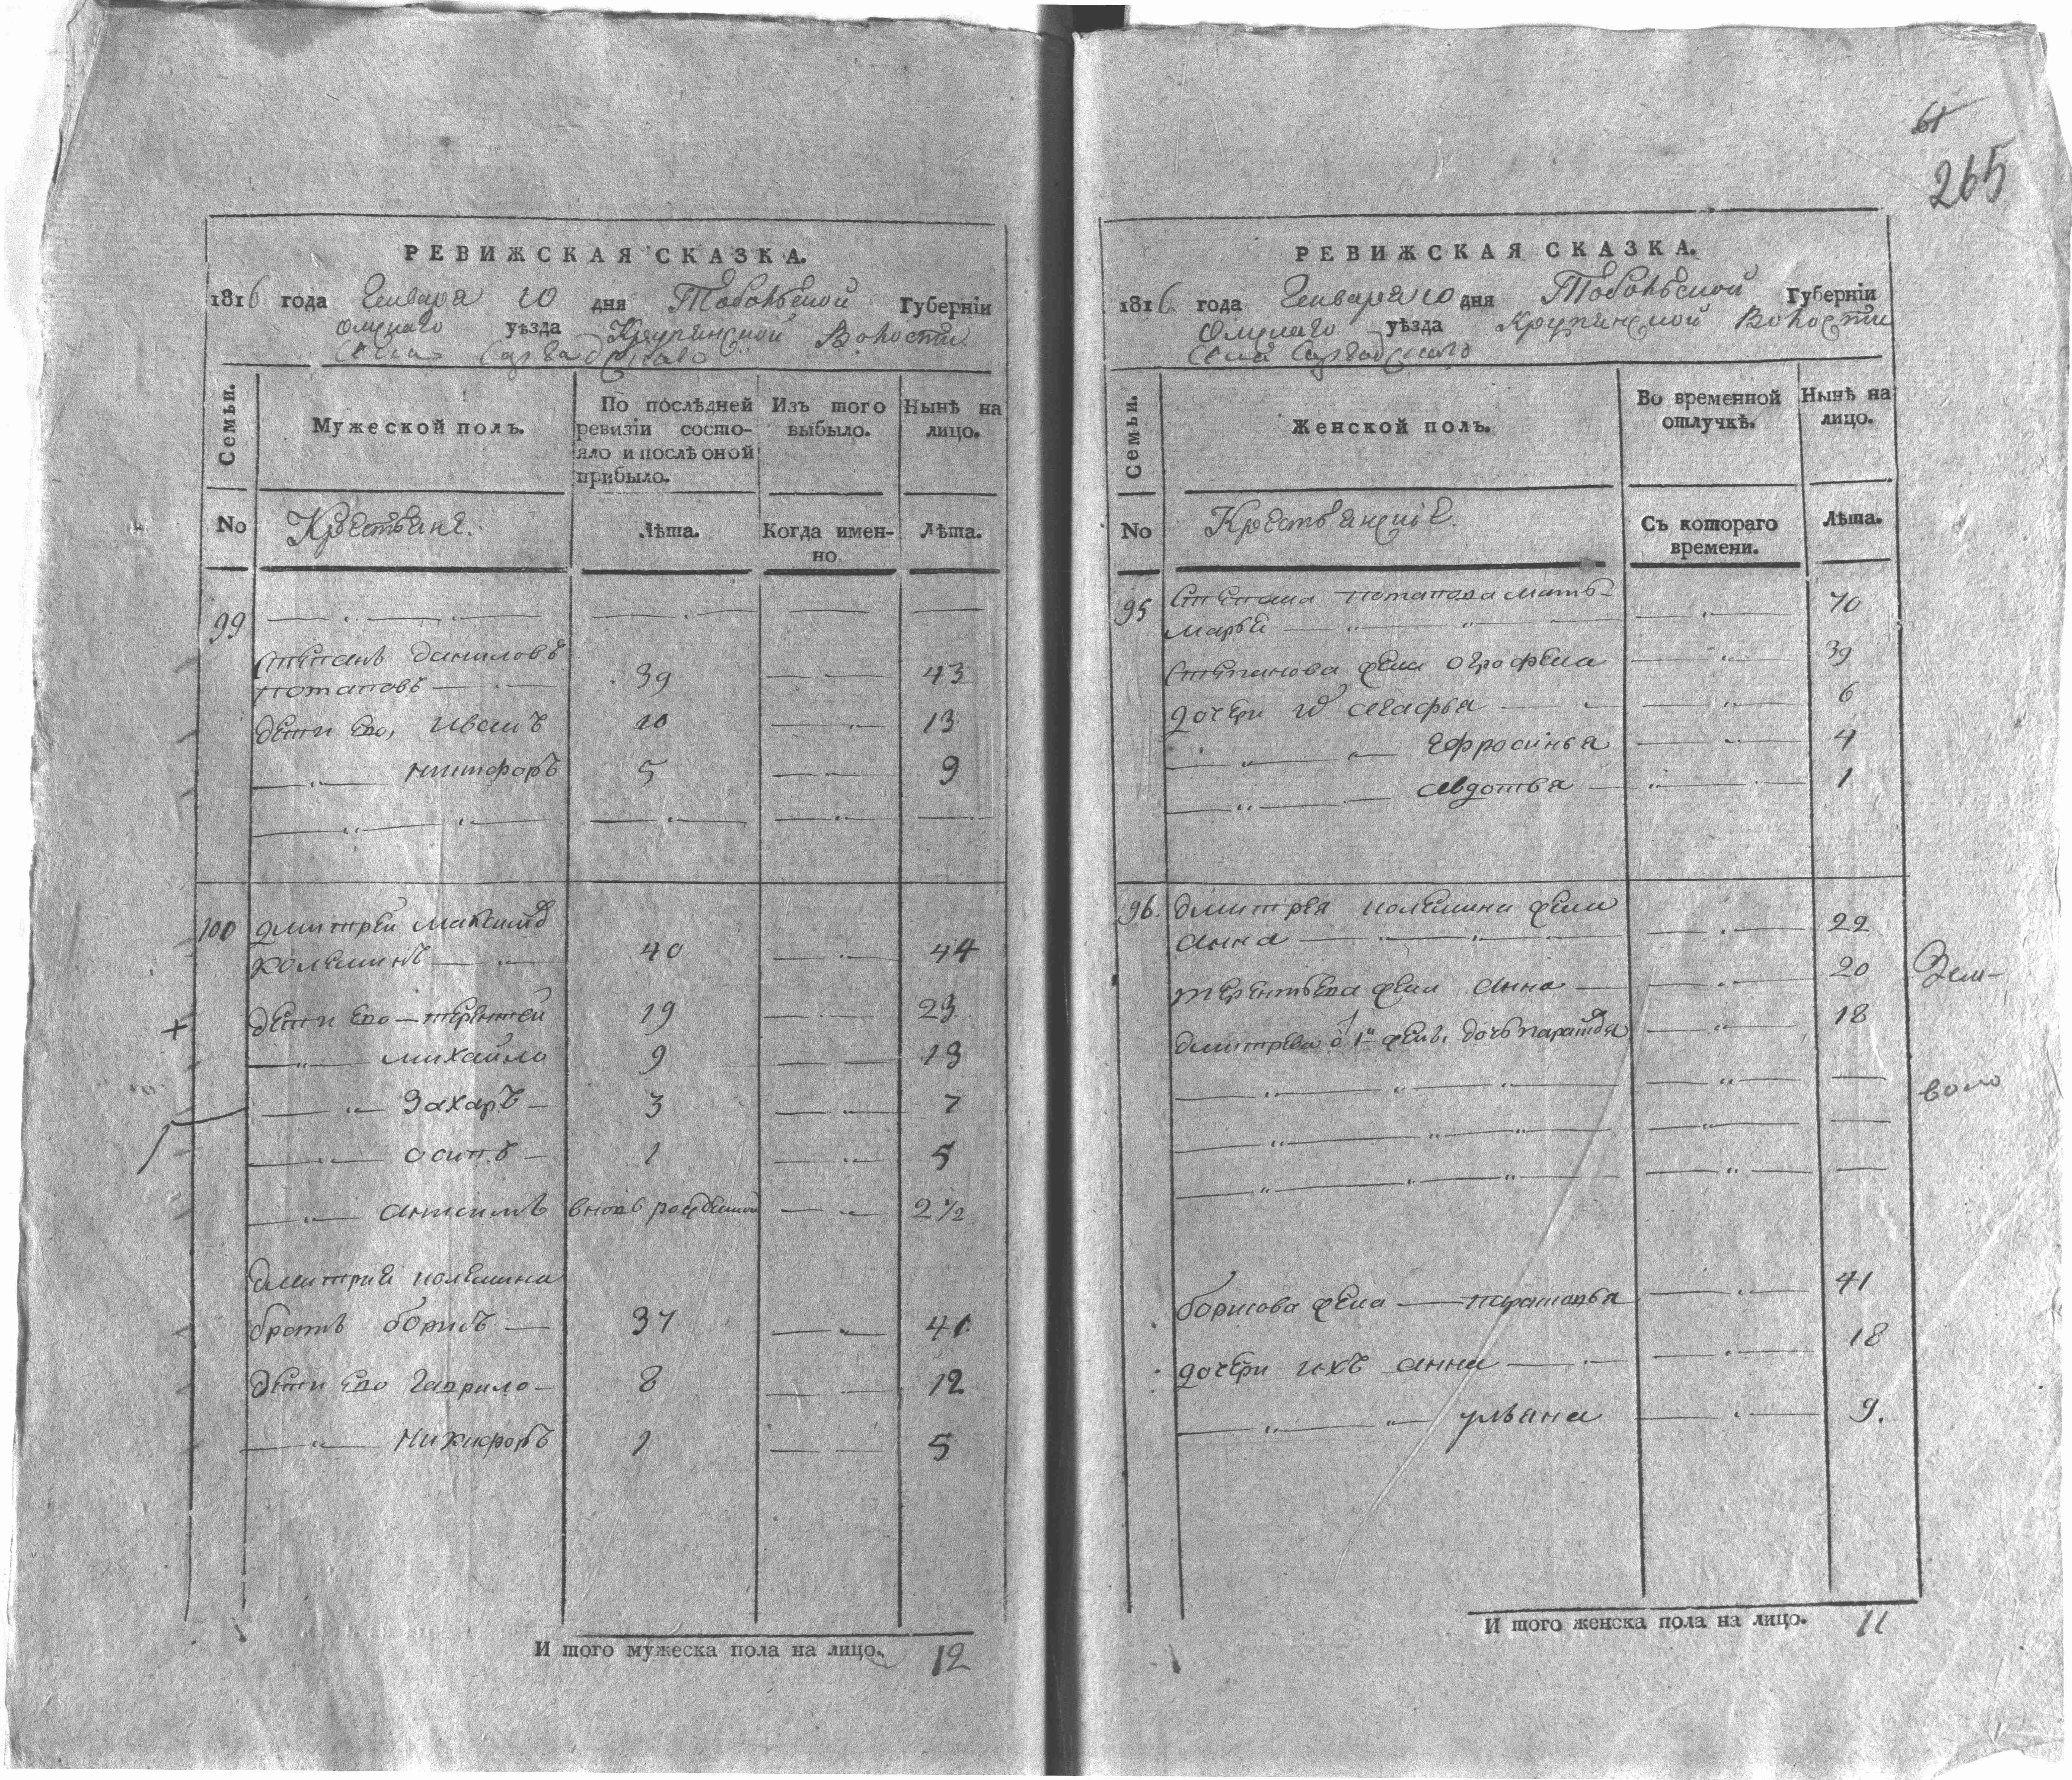 61
265
РЕВИЖСКАЯ СКАЗКА.
1816 года Генваря 10 дня Тобольской Губерніи
Омскаго уѣзда Крупинской Волости
Села Саргадскаго
Семьи.
Мужеской полъ.
По послѣдней ревизіи состо-
яло и послѣ оной
прибыло.
Изъ того выбыло.
Нынѣ на лицо.
No
Крестьяне.
Лѣта.
Когда имен-
но.
Лѣта.
99
Степанъ Даниловъ
Потаповъ 39 43
дети ево, Иванъ 10 13
Никифоръ 5 9
100 Дмитрей Максимов
Колемин 40 44
дети ево терентей 19 23
михайло 9 13
Захаръ 3 7
осипъ 1 5
антипъ вновь рожденной 2 1/2
Дмитрия колемина
братъ борисъ 37 41
дети ево гаврило 8 12
Никифоръ 1 5
И того мужеска пола на лицо. 12
РЕВИЖСКАЯ СКАЗКА.
1816 года Генваря 10 дня Тобольской Губерніи
Омскаго уѣзда Крупинской Волости
Села Саргадскаго
Семьи.
Женской полъ.
Во временной
отлучкѣ.
Нынѣ на
лицо.
No
Крестьянскіе.
Съ котораго
времени.
Лѣта.
95 Степана потапова мать
Марья 70
Степанова жена огрофена 39
дочери агафья 6
Ефросинья 4
авдотья 1
96. Дмитрея колемина жена
анна 22
терентьева жена анна 20
Дмитрева 1й жены дочь 18
борисова жена 41
дочери ихъ анна 18
ульяна 9.
Зем-
вому
И того женска пола на лицо. 11